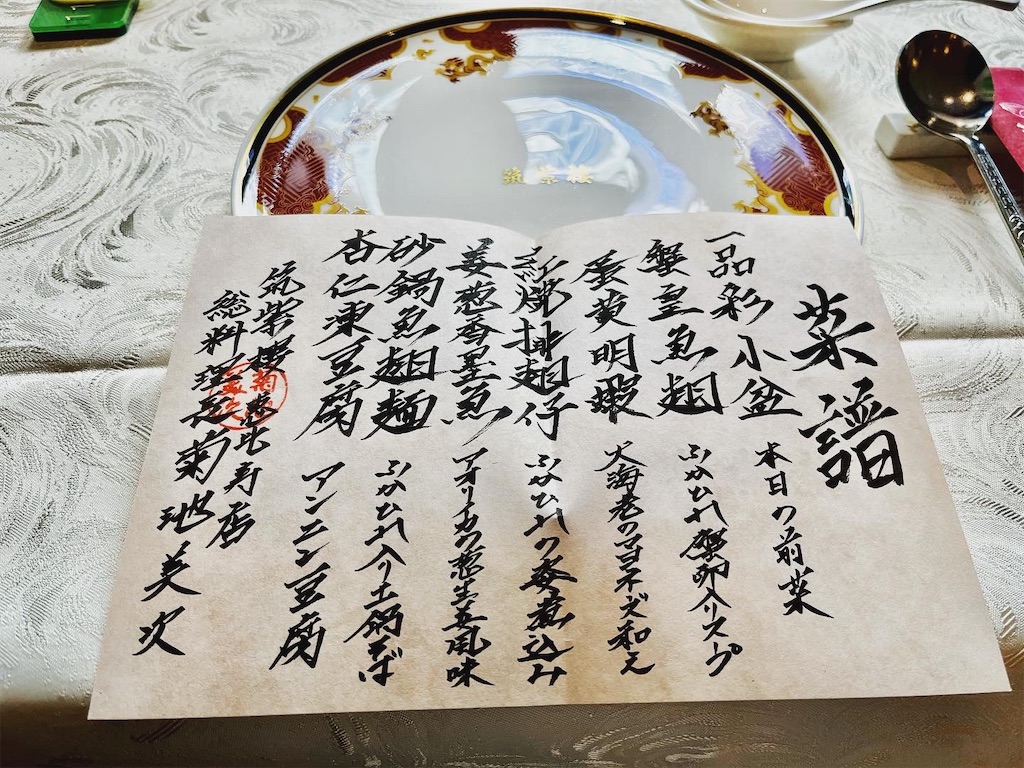 菜譜
一品彩小盆
本日の前菜
蟹皇魚翅
ふかひれ蟹卵入りスープ
蛋黄明蝦
大海老のマヨネーズ和え
紅焼排翅仔
ふかひれの姿煮込み
姜葱香墨魚
アオリイカの葱生姜風味
砂鍋魚翅麺
ふかひれ入り土鍋そば
杏仁凍豆腐
アンニン豆腐
筑紫樓恵比寿店
総料理長菊地美次
筑紫樓